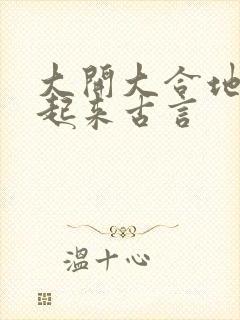 大開大合地
起来古言
溫十心